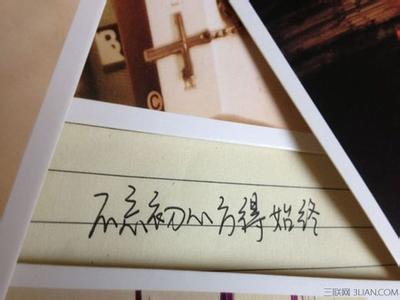 B
©
不忘初心方得始终
三联网 3LIAN.COM